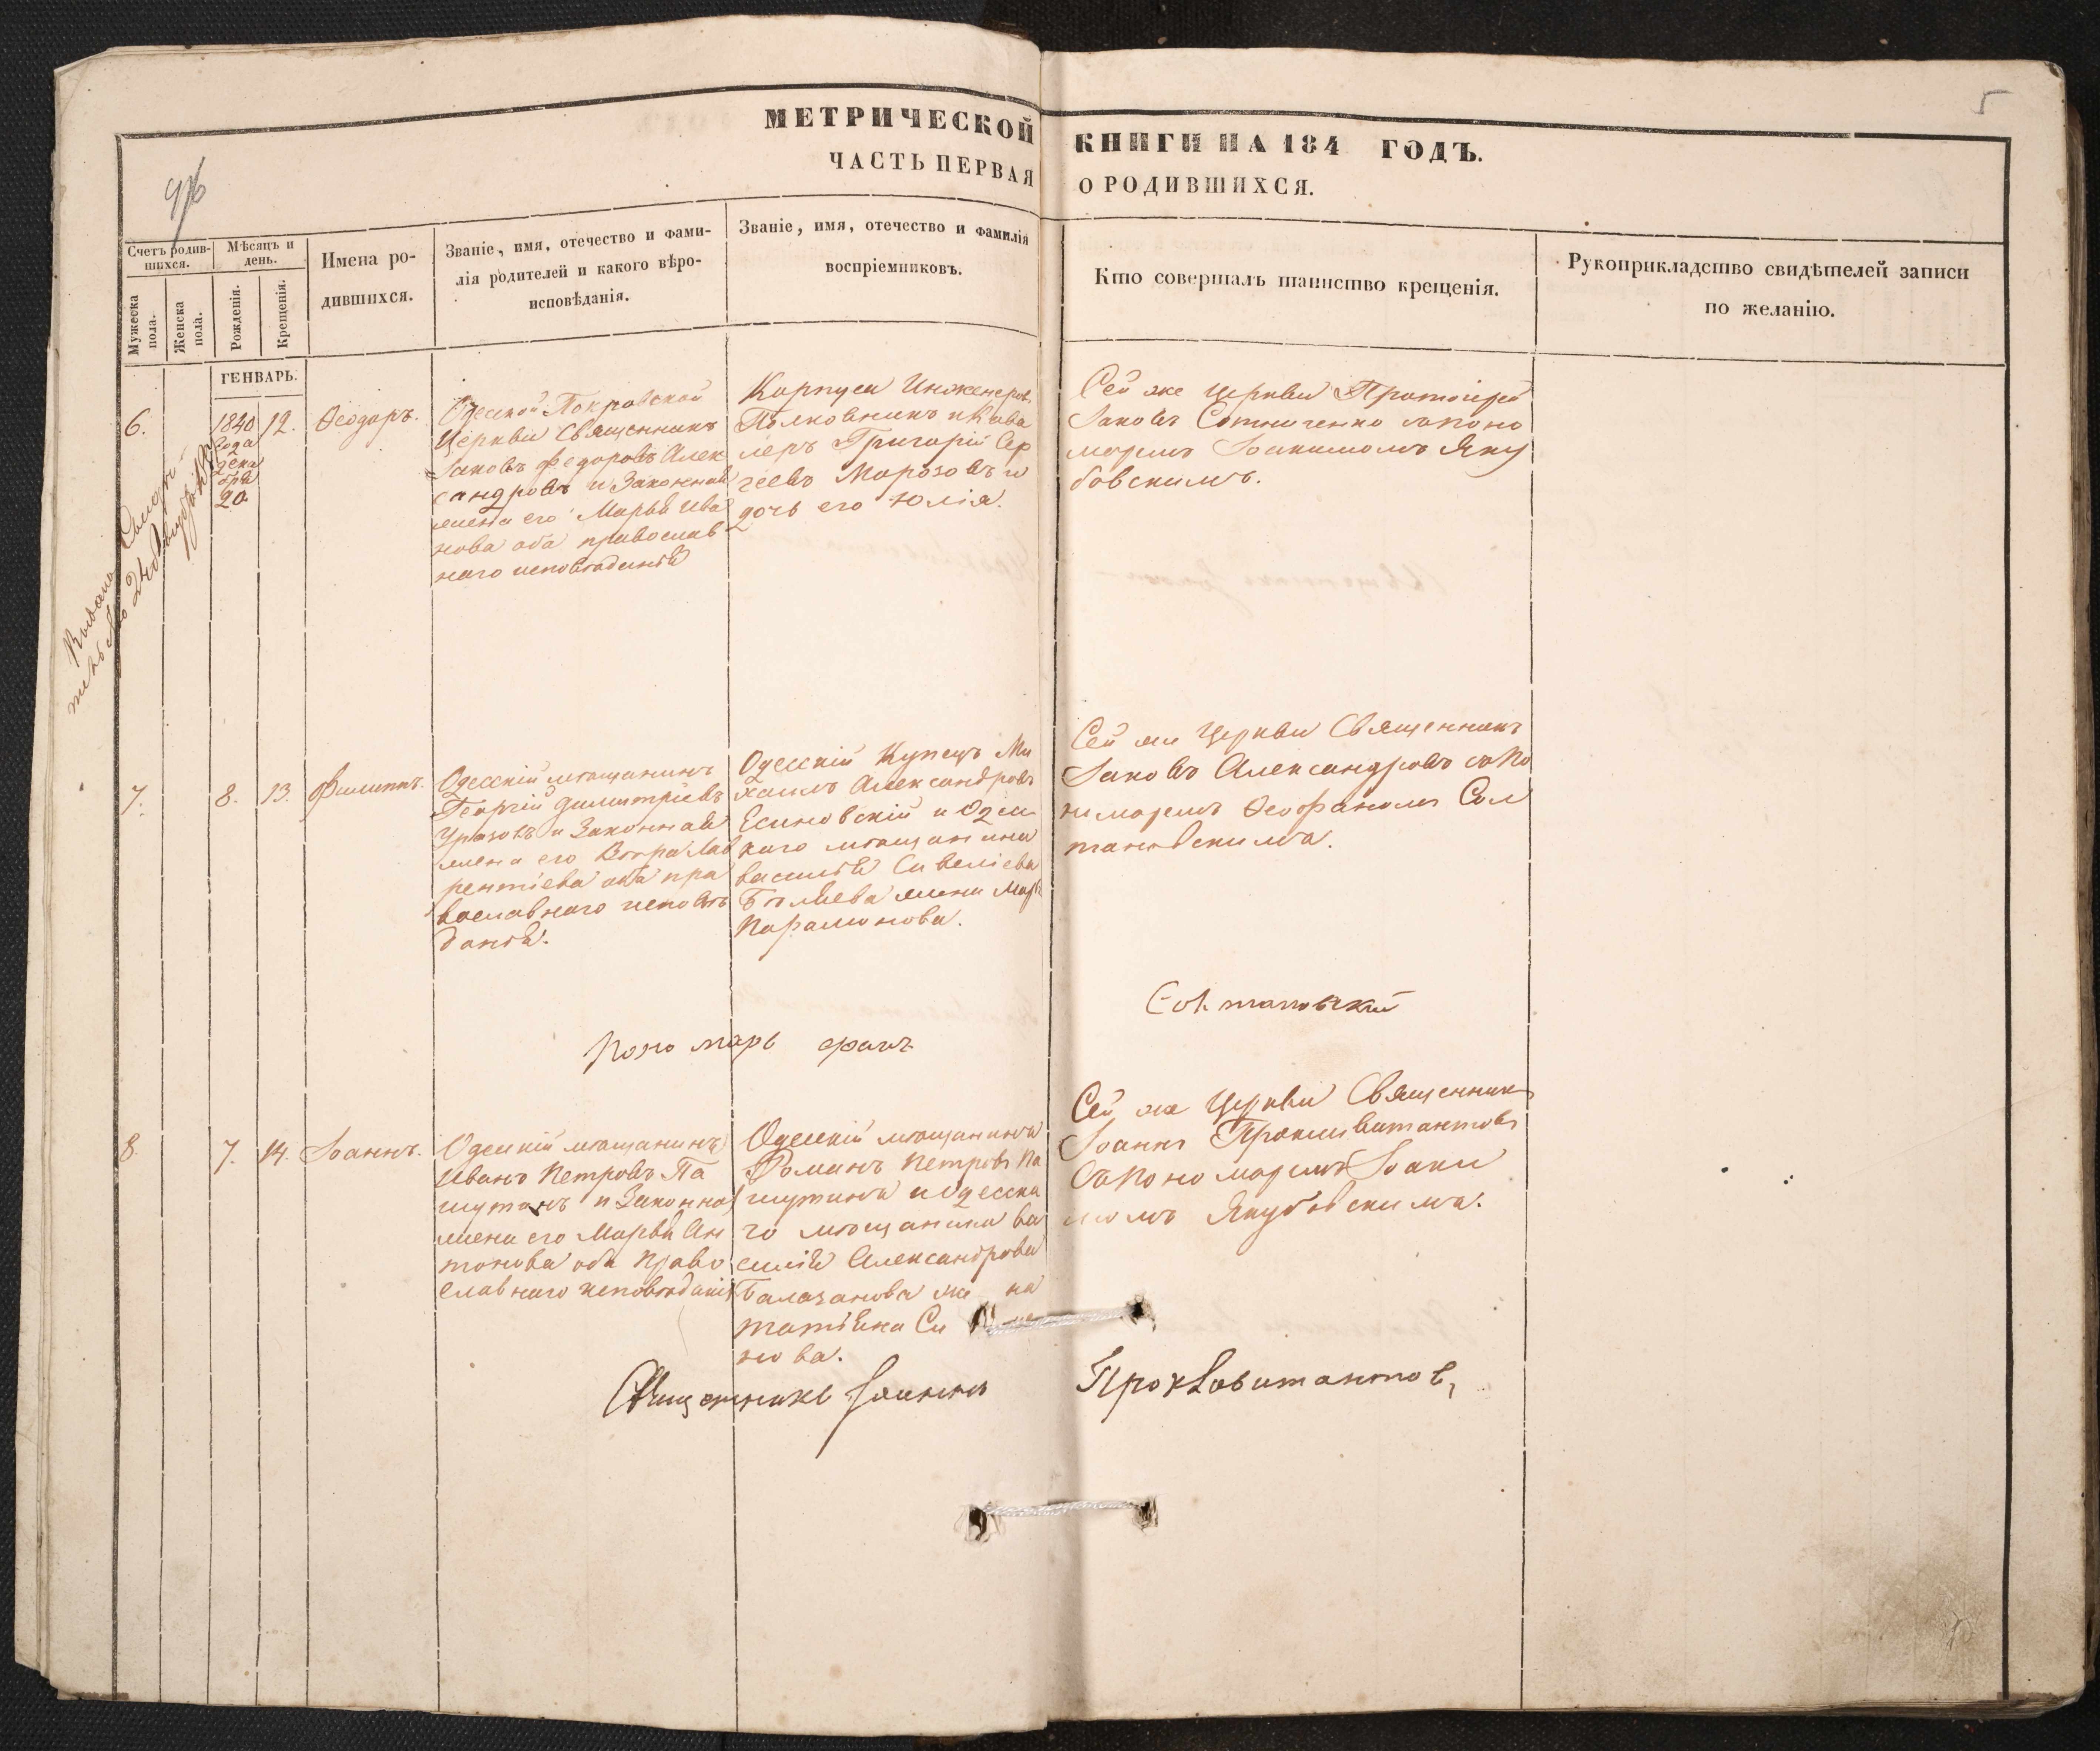 5
МЕТРИЧЕСКОЙ КНИГИ НА 184 ГОДЪ.
ЧАСТЬ ПЕРВАЯ О РОДИВШИХСЯ.
Счетъ родив-
шихся.
Мужеска
пола.
Женска
пола.
Мѣсяцъ и
день.
Рожденія.
Крещенія.
Имена ро-
дившихся.
Званіе, имя, отечество и фами-
лія родителей и какого вѣро-
исповѣданія.
Званіе, имя, отечество и фамилія
воспріемниковъ.
Кто совершалъ таинство крещенія.
Рукоприкладство свидѣтелей записи
по желанію.
ГЕНВАРЬ.
6.
1840
года
дека
бря
20
12.
Ѳеодоръ.
Одесской Покровской
Церкви Священникъ
Іаковъ Федоровъ Алек
сандровъ и Законная
жена его Марья Ива
нова оба православ
наго исповѣданія
Корпуса Инженеровъ
Полковникъ и Кава
леръ Григорій Сер
геевъ Морозовъ и
дочь его Юлія.
Сей же Церкви Протоіерей
Іаковъ Сотниченко съ поно
маремъ Іоакимомъ Яку
бовскимъ.
Выдано
7.
8.
13.
Филиппъ.
Одесскій мѣщанинъ
Георгій Димитріевъ
и Законная
жена его Вѣра Лав
рентіева оба пра
вославнаго исповѣ
данія.
Одесскій Купецъ Ми
хаилъ Александровъ
Есиновскій и Одес
каго мѣщанина
Василія Савеліева
Бѣляева жена
Парамонова.
Сей же Церкви Священникъ
Іаковъ Александровъ съ По
номаремъ Ѳеофаномъ Сол
тановскимъ.
Пономарь фанъ Солтановскій
8.
7.
14.
Іоаннъ.
Одескій мѣщанинъ
Иванъ Петровъ Па
шутинъ и Законная
жена его Марья Ан
тонова оба Право
славнаго исповѣданія
Одесскій мѣщанинъ
Романъ Петровъ Па
шутинъ и Одесска
го мѣщанина Ва
силія Александрова
Балазанова же на
татіяна Си
нова.
Сей же Церкви Священникъ
Іоаннъ
Съ Пономаремъ Іоаки
момъ Якубовскимъ.
Священникъ Іоаннъ